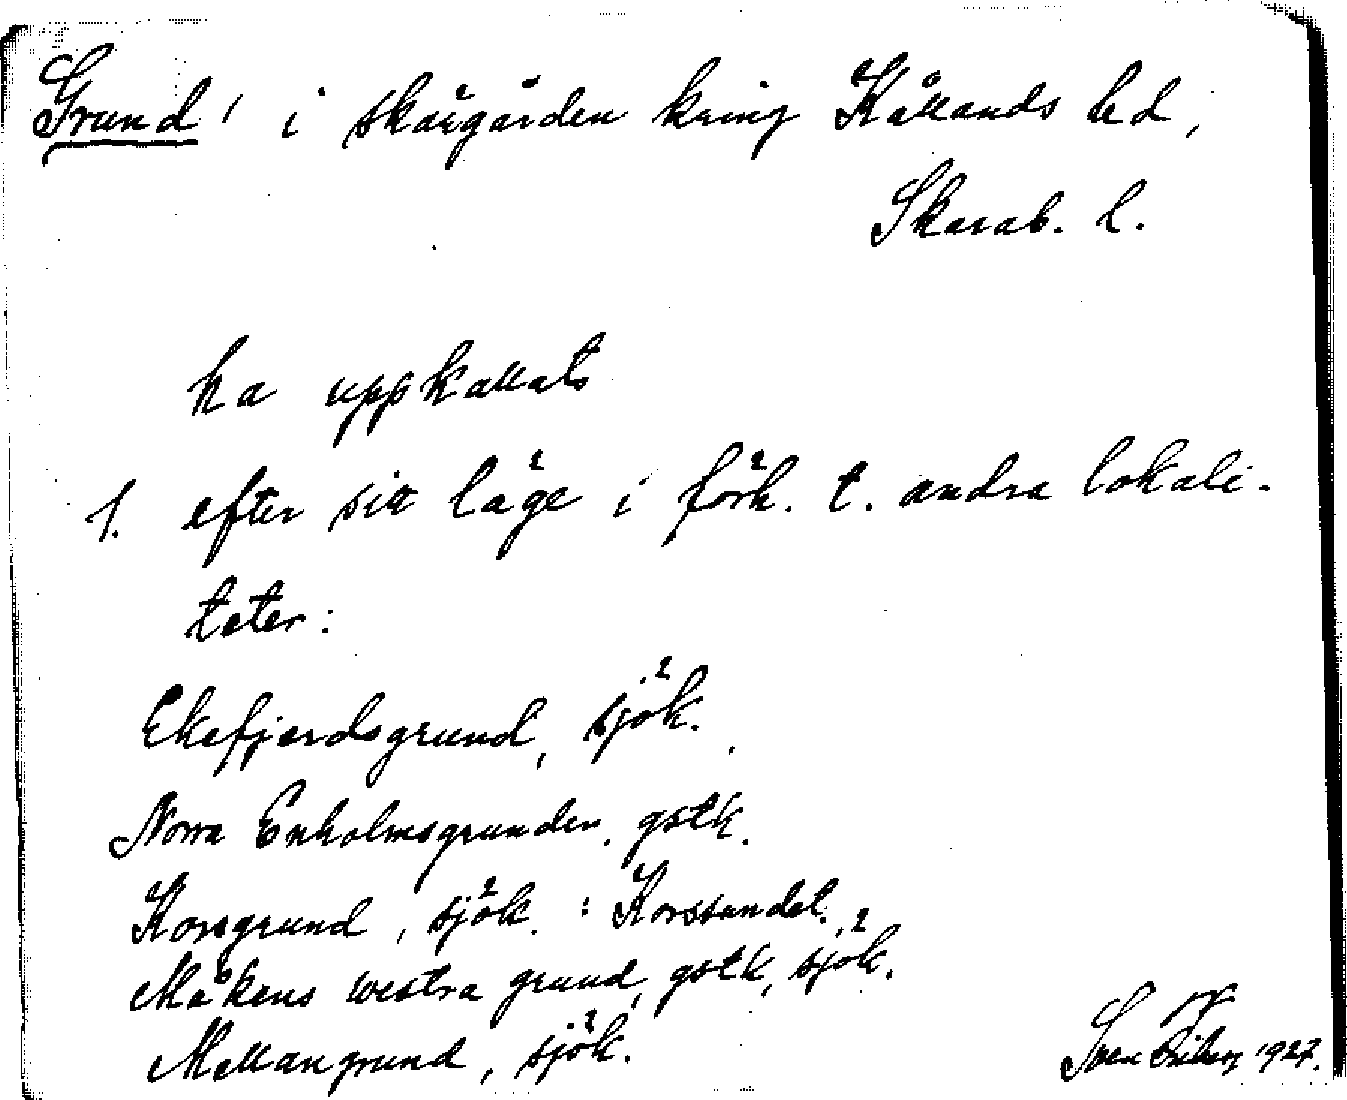 Grund i skärgården kring Kållands hd,
Skarab. l.
ha uppkallats
1. efter sitt läge i förh. t. andra lokali-
teter:
Ekefjerdsgrund, sjök.
Norra Enholmsgrunden, gstk.
Korsgrund, sjök. : Korssundet.
Måkens westra grund, gstk, sjök.
Mellangrund, sjök.
Sven 1927.